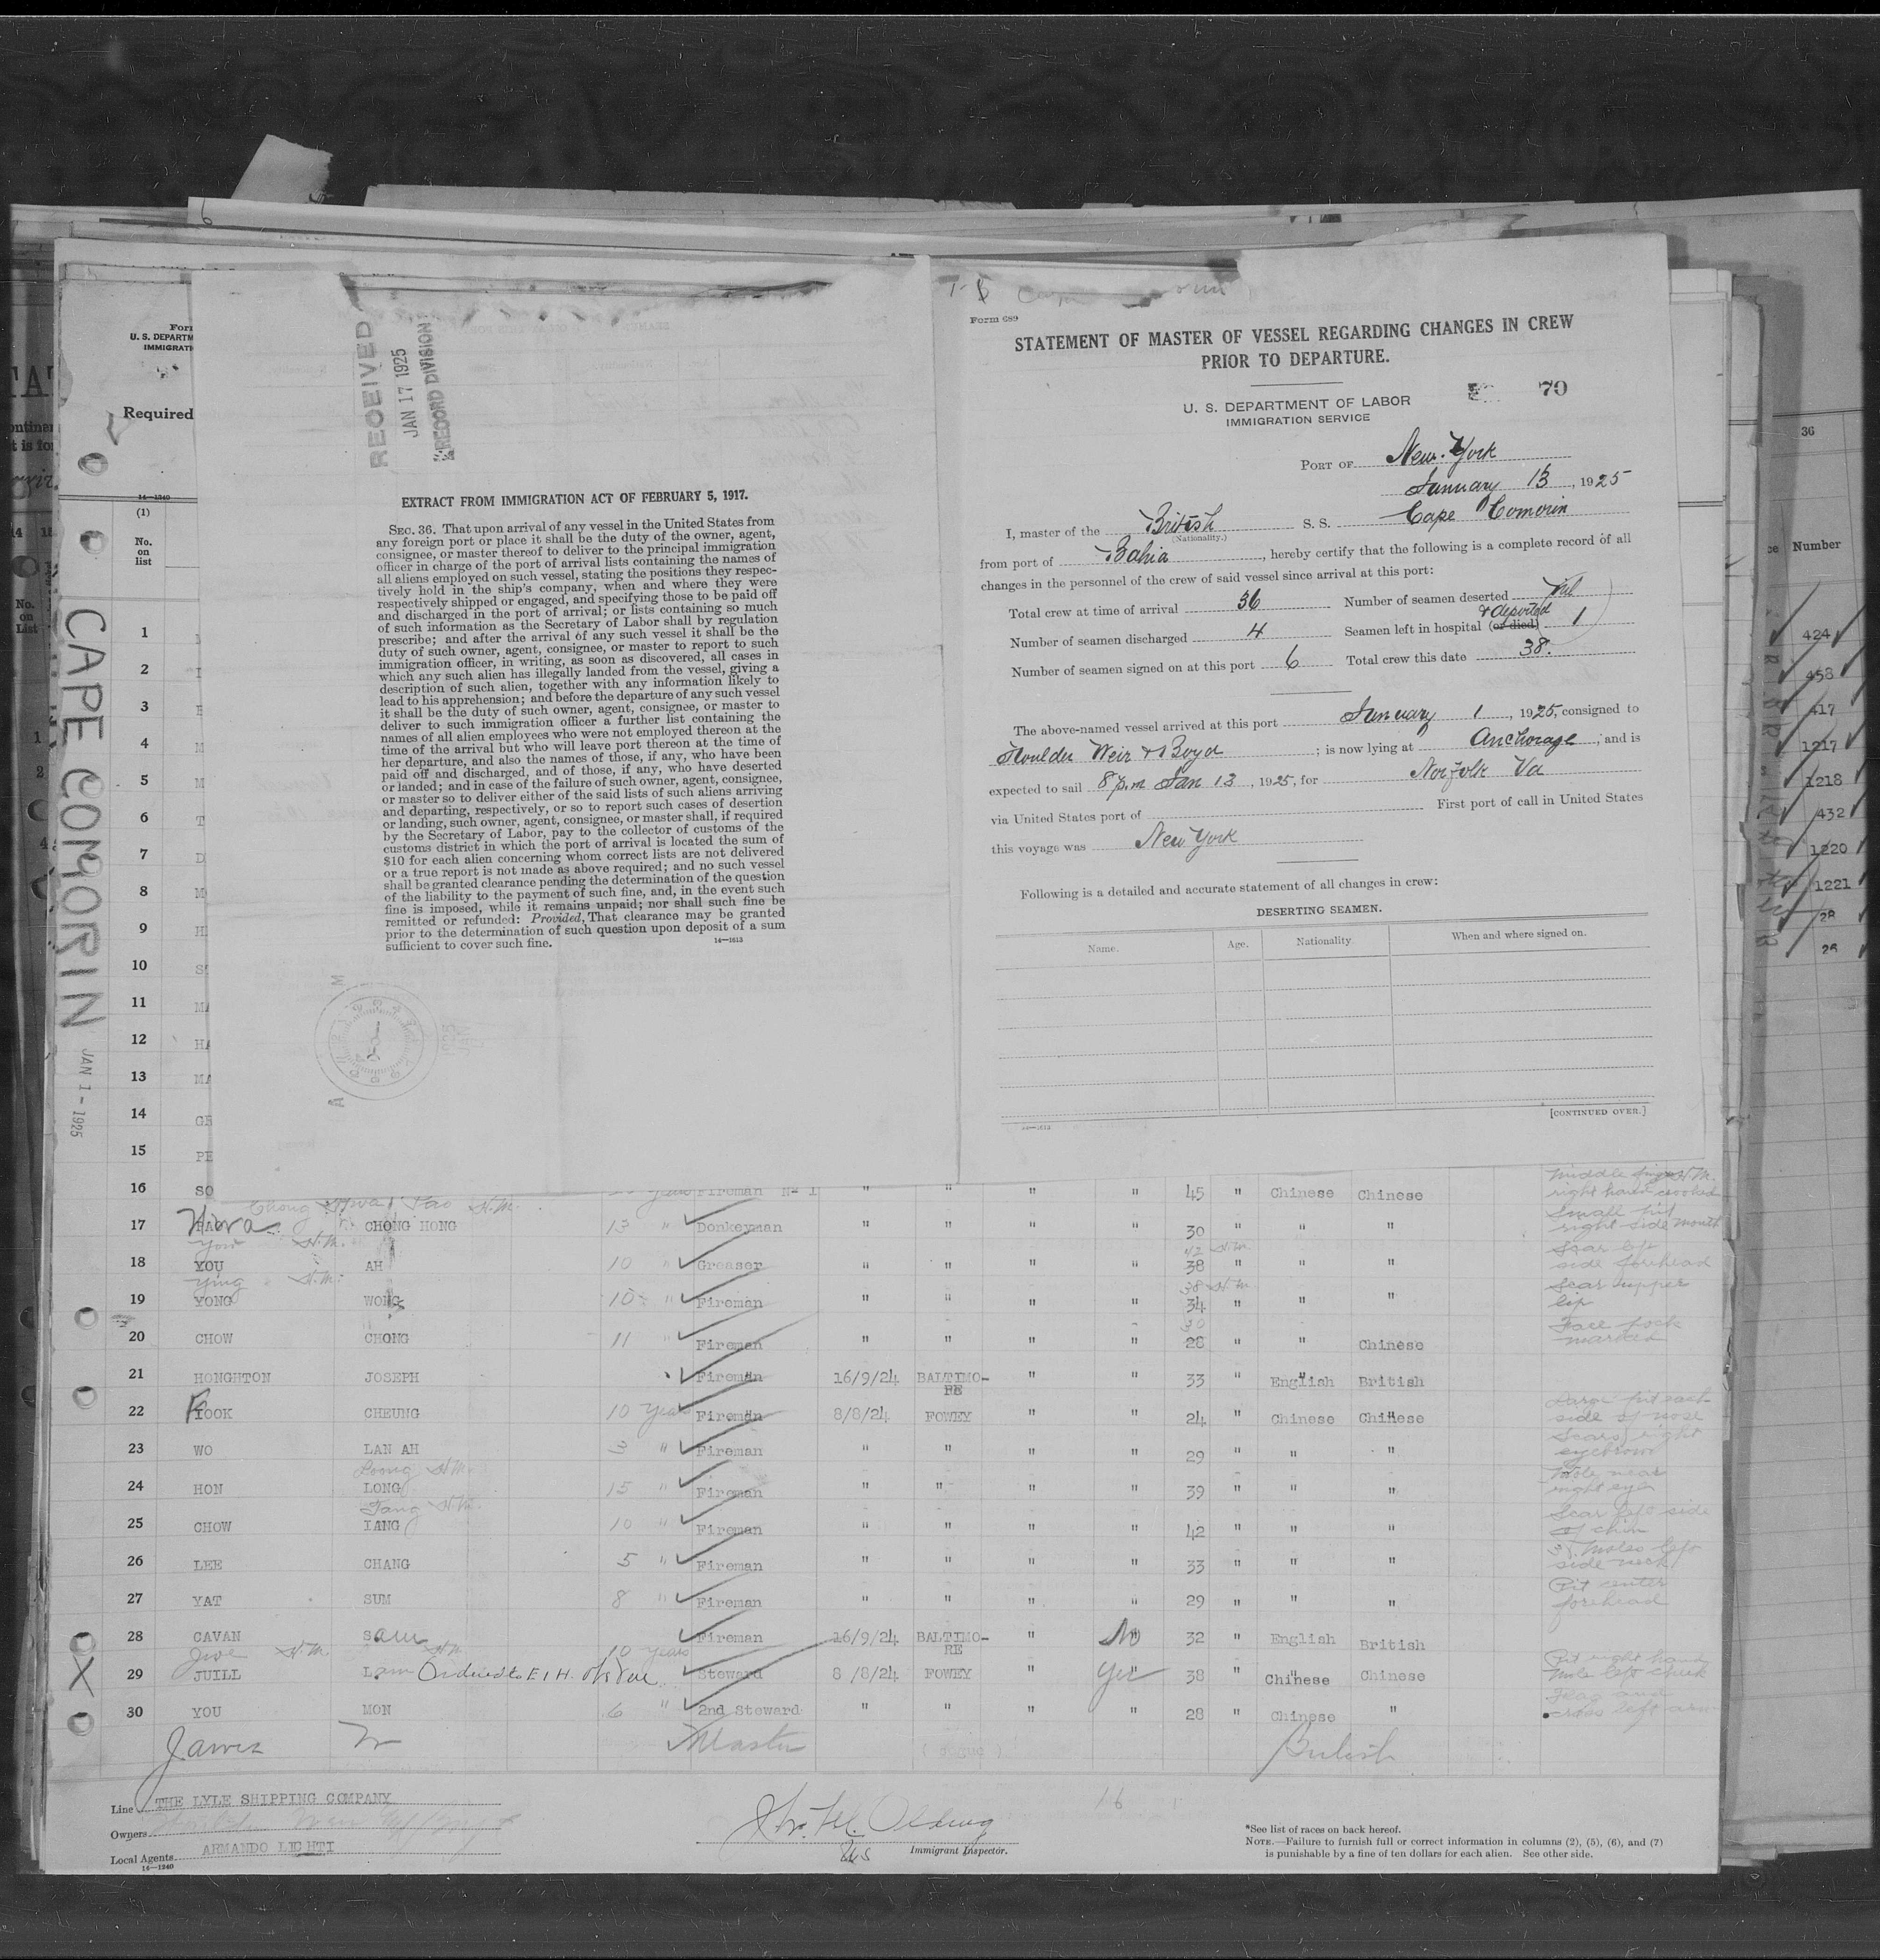 RECEIVED
JAN 17 1925
RECORD DIVISION
EXTRACT FROM IMMIGRATION ACT OF FEBRUARY 5, 1917.
SEC. 36. That upon arrival of any vessel in the United States from
any foreign port or place it shall be the duty of the owner, agent,
consignee, or master thereof to deliver to the principal immigration
officer in charge of the port of arrival lists containing the names of
all aliens employed on such vessel, stating the positions they respec-
tively hold in the ship's company, when and where they were
respectively shipped or engaged, and specifying those to be paid off
and discharged in the port of arrival; or lists containing so much
of such information as the Secretary of Labor shall by regulation
prescribe; and after the arrival of any such vessel it shall be the
duty of such owner, agent, consignee, or master to report to such
immigration officer, in writing, as soon as discovered, all cases in
which any such alien has illegally landed from the vessel, giving a
description of such alien, together with any information likely to
lead to his apprehension; and before the departure of any such vessel
it shall be the duty of such owner, agent, consignee, or master to
deliver to such immigration officer a further list containing the
names of all alien employees who were not employed thereon at the
time of the arrival but who will leave port thereon at the time of
her departure, and also the names of those, if any, who have been
paid off and discharged, and of those, if any, who have deserted
or landed; and in case of the failure of such owner, agent, consignee,
or master so to deliver either of the said lists of such aliens arriving
and departing, respectively, or so to report such cases of desertion
or landing, such owner, agent, consignee, or master shall, if required
by the Secretary of Labor, pay to the collector of customs of the
customs district in which the port of arrival is located the sum of
$10 for each alien concerning whom correct lists are not delivered
or a true report is not made as above required; and no such vessel
shall be granted clearance pending the determination of the question
of the liability to the payment of such fine, and, in the event such
fine is imposed, while it remains unpaid; nor shall such fine be
remitted or refunded: Provided, That clearance may be granted
prior to the determination of such question upon deposit of a sum
sufficient to cover such fine.
14—1613
Form 689
STATEMENT OF MASTER OF VESSEL REGARDING CHANGES IN CREW
PRIOR TO DEPARTURE.
70
U. S. DEPARTMENT OF LABOR
IMMIGRATION SERVICE
PORT OF New York
January 13, 1925
I, master of the British S. S. Cape Comorin
(Nationality.)
from port of Bahia, hereby certify that the following is a complete record of all
changes in the personnel of the crew of said vessel since arrival at this port:
Total crew at time of arrival 36 Number of seamen deserted Nil
& deported
Number of seamen discharged 4 Seamen left in hospital (or died) 1
Number of seamen signed on at this port 6 Total crew this date 38.
The above-named vessel arrived at this port January 1, 1925, consigned to
Houlder Weir & Boyd; is now lying at Anchorage, and is
expected to sail 8 p.m Jan 13, 1925, for Norfolk Va
via United States port of First port of call in United States
this voyage was New York
Following is a detailed and accurate statement of all changes in crew:
DESERTING SEAMEN.
Name. Age. Nationality. When and where signed on.
[CONTINUED OVER.]
14—1613
CAPE COMORIN
JAN 1 - 1925
U. S. DEPARTM
IMMIGRATI
Required
14—1240
(1)
No.
on
list
1
2
3
4
5
6
7
8
9
10
11
12
13
14
15
16 SO Fireman Nº 1 " " " " 45 " Chinese Chinese right hand crooked
Small pit
17 Hwa CHONG HONG 13 " Donkeyman " " " " 30 " " " right side mouth
18 YOU AH 10 " Greaser " " " " 38 " " " side forehead
Ying Scar upper
19 YONG WONG 10 " Fireman " " " " 34 " " " lip
Face pock
20 CHOW CHONG 11 " Fireman " " " " 28 " " Chinese marked
21 HONGHTON JOSEPH Fireman 16/9/24 BALTIMO-RE " " 33 " English British
22 FOOK CHEUNG 10 Years Fireman 8/8/24 FOWEY " " 24 " Chinese Chinese side of nose
23 WO LAN AH 3 " Fireman " " " " 29 " " " eyebrow
Loong Mole near
24 HON LONG 15 " Fireman " " " " 39 " " " right eye
Tang Scar left side
25 CHOW IANG 10 " Fireman " " " " 42 " " " of chin
moles left
26 LEE CHANG 5 " Fireman " " " " 33 " " " side neck
Pit center
27 YAT SUM 8 " Fireman " " " " 29 " " " forehead
28 CAVAN Sam Fireman 16/9/24 BALTIMO-RE " No 32 " English British
10 years Pit right hand
29 JUILL Lam Ordered to E I H. Steward 8/8/24 FOWEY " Yes 38 " Chinese Chinese mole left cheek
Flag and
30 YOU MON 6 " 2nd Steward " " " " 28 " Chinese " cross left arm
James W Master British
Line THE LYLE SHIPPING COMPANY
Owners
Local Agents ARMANDO LIGHTI
14—1240
Immigrant Inspector.
*See list of races on back hereof.
NOTE.—Failure to furnish full or correct information in columns (2), (5), (6), and (7)
is punishable by a fine of ten dollars for each alien. See other side.
36
Number
424
458
417
1217
1218
432
1220
1221
28
26